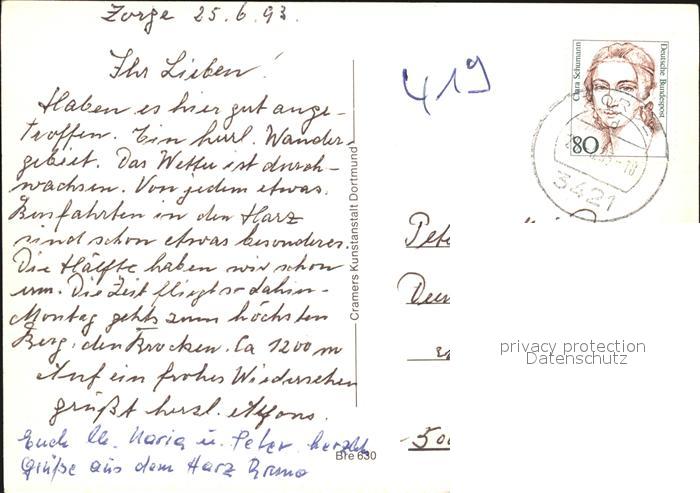 Zorge 25.6.93.
Ihr Lieben!
Haben es hier gut ange-
troffen. Ein herrl. Wander-
gebiet. Das Wetter ist durch-
wachsen. Von jedem etwas.
Busfahrten in den Harz
sind schon etwas besonderes.
Die Hälfte haben wir schon
um. Die Zeit fliegt so dahin-
Montag gehts zum höchsten
Berg, den Brocken. Ca 1200 m
Auf ein frohes Wiedersehen
grüßt herzl. Alfons.
Euch lb. Maria u. Peter herzlich
Grüße aus dem Harz
Bre 630
Cramers Kunstanstalt Dortmund
419
Clara Schumann
Deutsche Bundespost
80
3421
Pete
privacy protection
Datenschutz